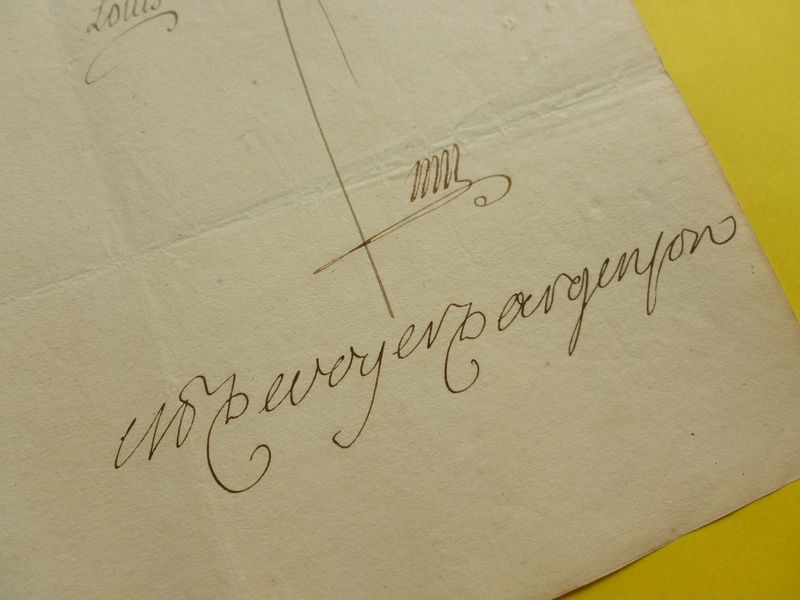 Louis
MR De voyer Dargenson